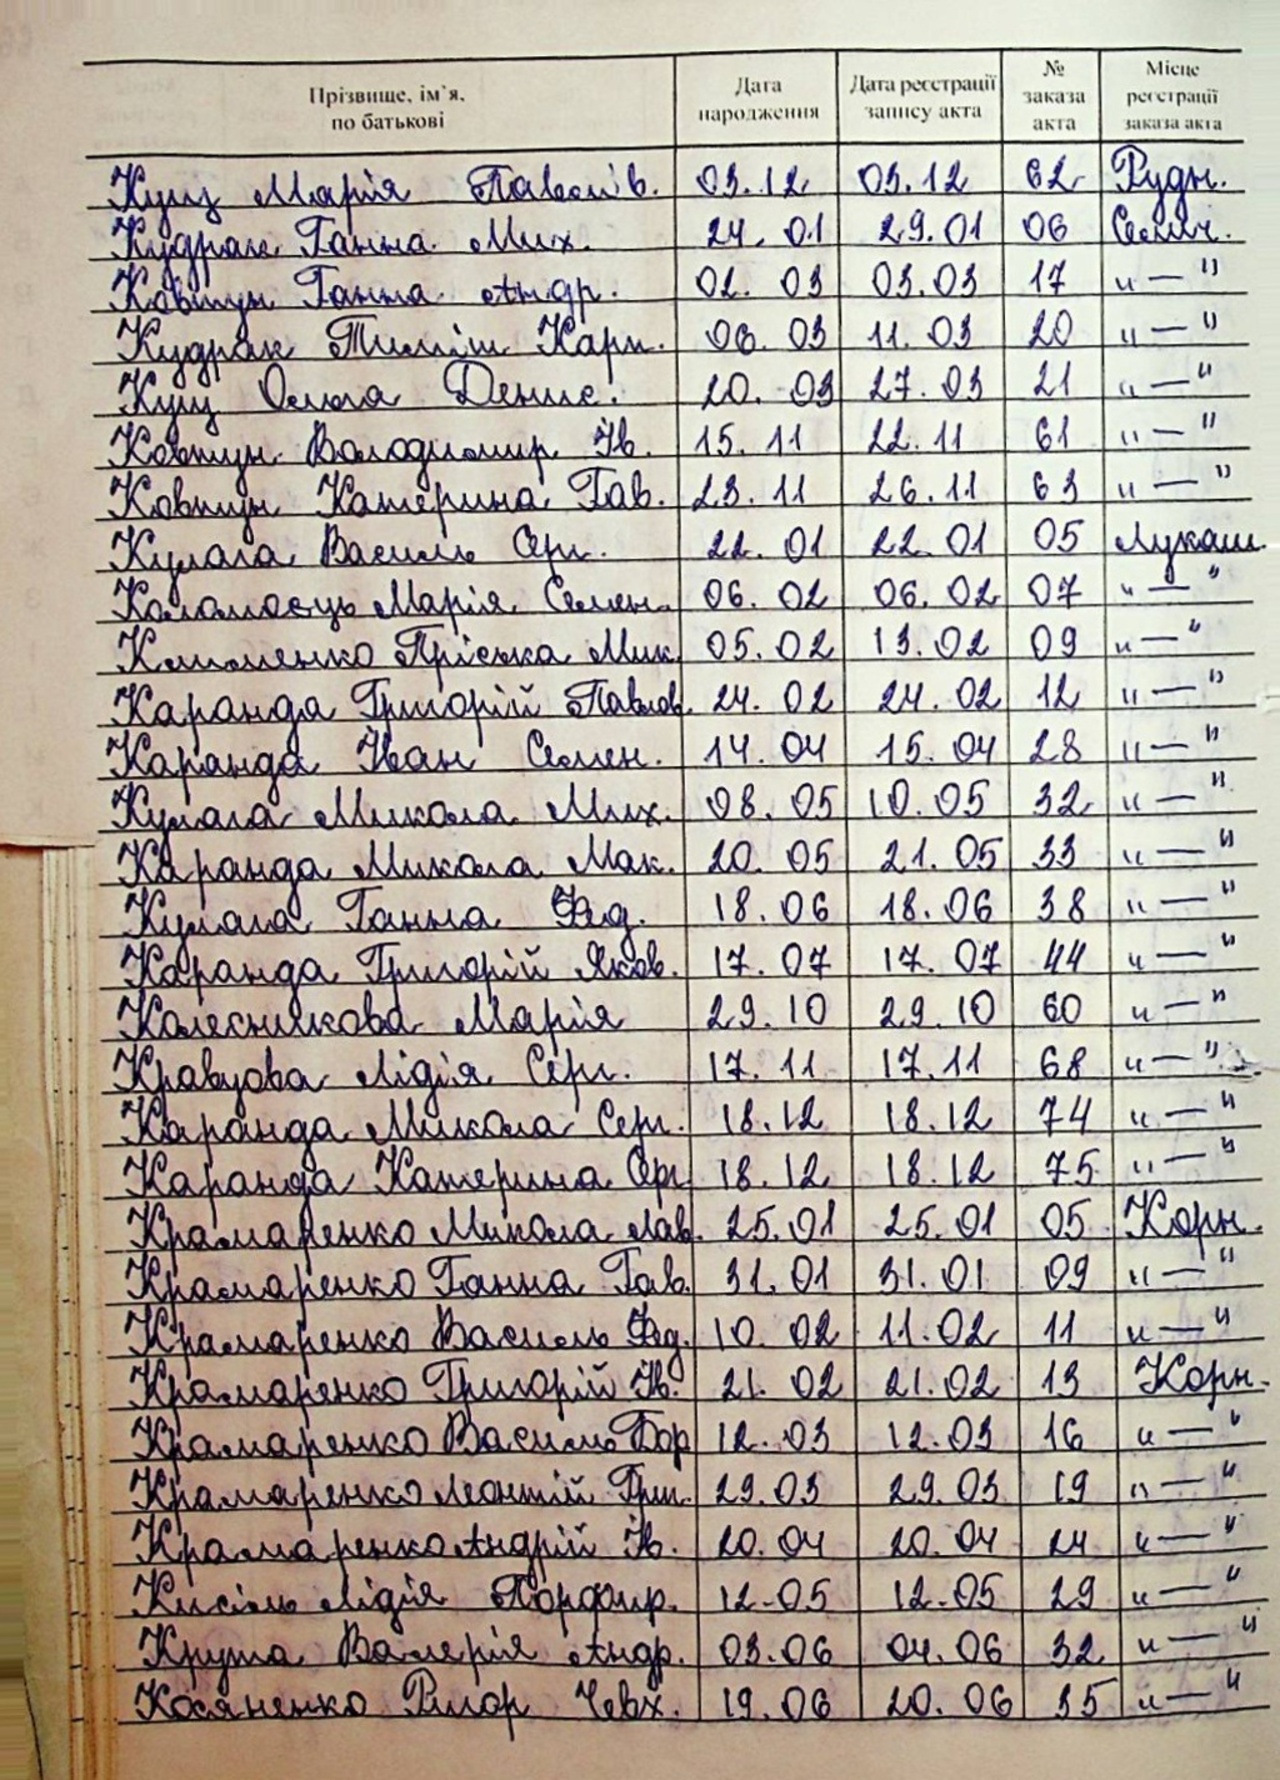 Прізвище, ім`я, по батькові Дата народження Дата реєстрації запису акта № заказа акта Місце реєстрації заказа акта
Кущ Марія Павлів. 03.12 03.12 62 Рудн.
Кудрак Ганна Мих. 24.01 29.01 06 Семич.
Ковтун Ганна Андр. 02.03 03.03 17 " — "
Кудрак Тиміш Карп. 06.03 11.03 20 " — "
Кущ Ольга Денис. 20.03 27.03 21 " — "
Ковтун Володимир Ів. 15.11 22.11 61 " — "
Ковтун Катерина Гав. 23.11 26.11 63 " — "
Кулага Василь Серг. 22.01 22.01 05 Лукаш.
Коломоєць Марія Семен. 06.02 06.02 07 " — "
Клименко Пріська Мик. 05.02 13.02 09 " — "
Каранда Григорій Павлов. 24.02 24.02 12 " — "
Каранда Іван Семен. 14.04 15.04 28 " — "
Кулага Микола Мих. 08.05 10.05 32 " — "
Каранда Микола Мак. 20.05 21.05 33 " — "
Кулага Ганна Фед. 18.06 18.06 38 " — "
Каранда Григорій Яков. 17.07 17.07 44 " — "
Колесникова Марія 29.10 29.10 60 " — "
Кравцова Лідія Серг. 17.11 17.11 68 " — "
Каранда Микола Серг. 18.12 18.12 74 " — "
Каранда Катерина Серг 18.12 18.12 75 " — "
Крамаренко Микола Лав. 25.01 25.01 05 Корн.
Крамаренко Ганна Гав. 31.01 31.01 09 " — "
Крамаренко Василь Фед. 10.02 11.02 11 " — "
Крамаренко Григорій Ів. 21.02 21.02 13 Корн.
Крамаренко Василь Бор 12.03 12.03 16 " — "
Крамаренко Леонтій Григ. 29.03 29.03 19 " — "
Крамаренко Андрій Ів. 20.04 20.04 24 " — "
Кисіль Лідія Порфир. 12.05 12.05 29 " — "
Крута Валерія Андр. 03.06 04.06 32 " — "
Косяненко 19.06 20.06 35 " — "